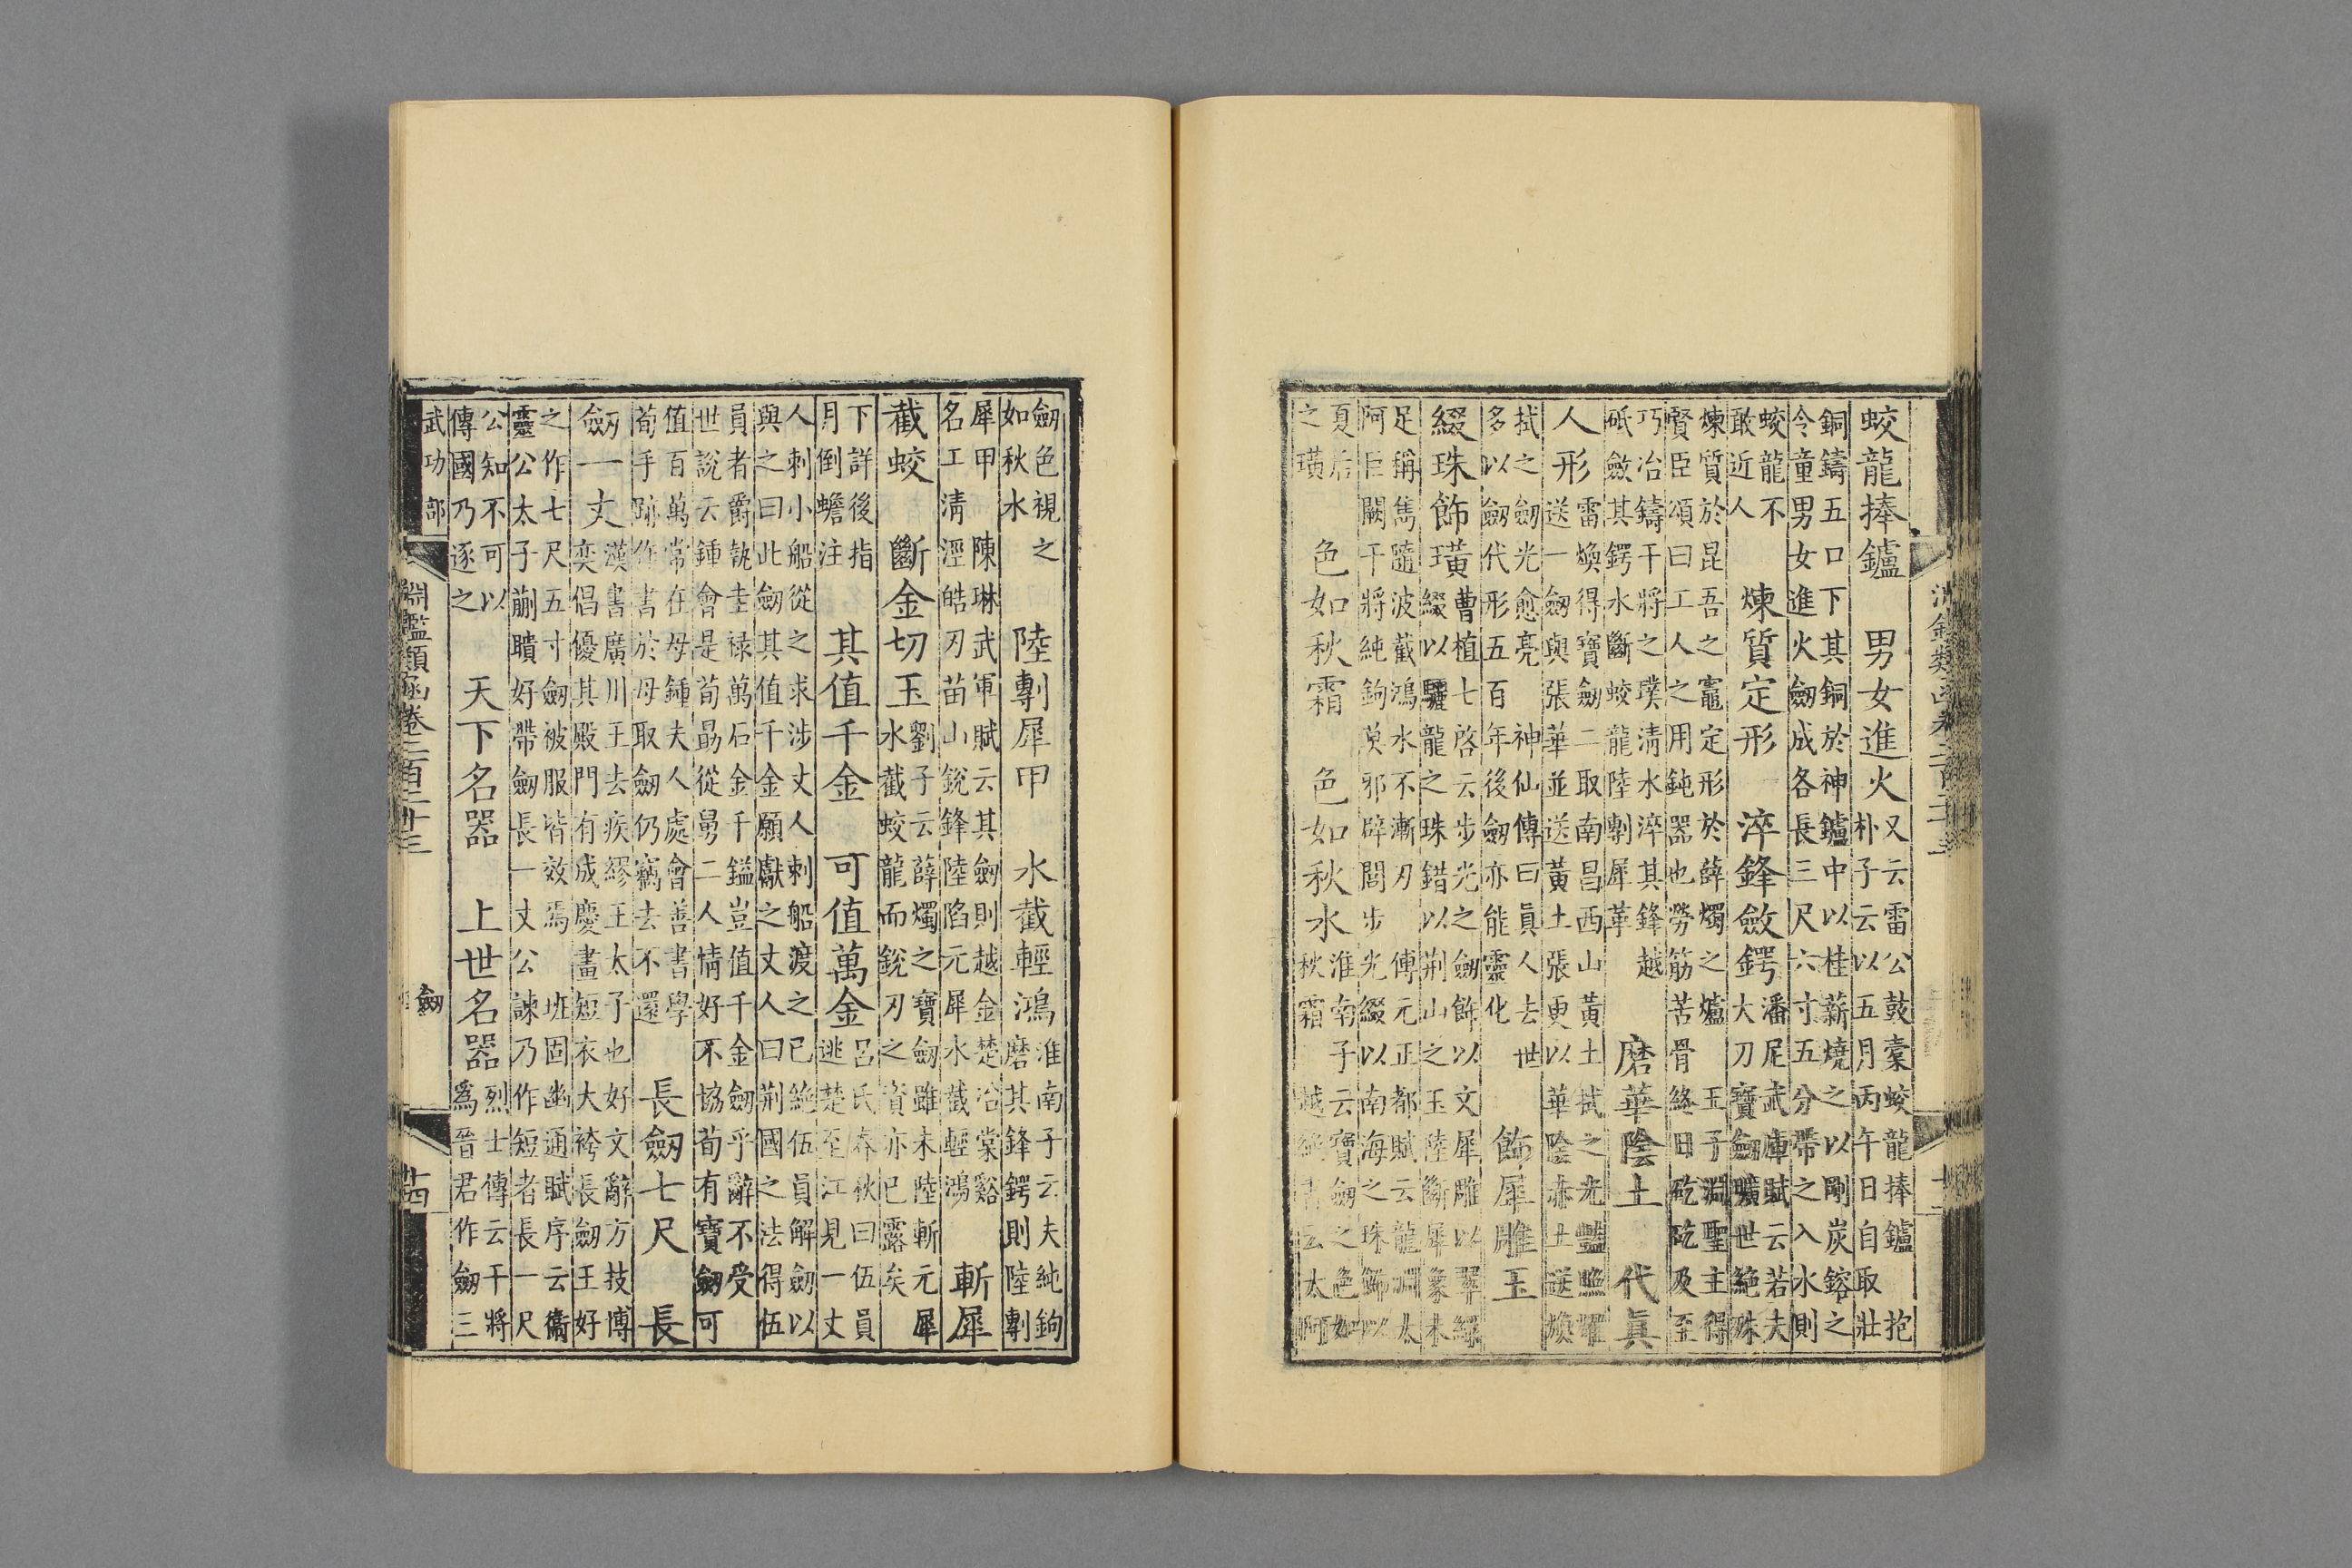 淵鑑類函卷二百二十三
蛟龍捧鑪　男女進火
又云雷公鼓橐蛟龍捧鑪　抱
朴子云以五月丙午日自取壯
銅鑄五口下其銅於神鑪中以桂薪燒之以剛炭鎔之
今童男女進火劔成各長三尺六寸五分帶之入水則
蛟龍不
敢近人
煉質定形　淬鋒斂鍔
潘尼武庫賦云若夫
大刀寶劔曠世絶殊
煉質於昆吾之竈定形於薛燭之爐　玉子淵聖主得
賢臣頌曰工人之用鈍器也勞筋苦骨終日矻矻及至
巧冶鑄干將之璞清水淬其鋒越
砥斂其鍔水斷蛟龍陸剸犀革
磨華陰土　代眞
人形
雷煥得寶劔二取南昌西山黃土拭之光豔照耀
送一劔與張華並送黃土張更以華陰赤土送煥
拭之劔光愈亮　神仙傳曰眞人去世
多以劔代形五百年後劔亦能靈化
飾犀雕玉
綴珠飾璜
曹植七啓云步光之劔飾以文犀雕以翠綠
綴以驪龍之珠錯以荆山之玉陸斷犀象未
足稱雋隨波截鴻水不漸刃　傅元正都賦云龍淵太
阿巨闕干將純鉤莫邪辟閭步光綴以南海之珠飾以
夏后
之璜
色如秋霜　色如秋水
淮南子云寶劔之色如
秋霜　越絶書云太阿
劔色視之
如秋水
陸剸犀甲　水截輕鴻
淮南子云夫純鉤
磨其鋒鍔則陸剸
犀甲　陳琳武軍賦云其劔則越金楚冶棠谿
名工清溼皓刃苗山銳鋒陸陷元犀水截輕鴻
斬犀
截蛟　斷金切玉
劉子云薛燭之寶劔雖未陸斬元犀
水截蛟龍而銳刃之資亦巳露矣
下詳後指
月倒蟾注
其值千金　可值萬金
呂氏春秋曰伍員
逃楚至江見一丈
人刺小船從之求涉丈人刺船渡之已絶伍員解劔以
與之曰此劔其值千金願獻之丈人曰荆國之法得伍
員者爵執圭禄萬石金千鎰豈值千金劔乎辭不受
世說云鍾會是荀勗從舅二人情好不協荀有寶劔可
值百萬常在母鍾夫人處會善書學
荀手跡作書於母取劔仍竊去不還
長劔七尺　長
劔一丈
漢書廣川王去疾繆王太子也好文辭方技博
奕倡優其殿門有成慶畫短衣大袴長劔王好
之作七尺五寸劔被服皆效焉　班固幽通賦序云衞
靈公太子蒯聵好帶劔長一丈公諫乃作短者長一尺
公知不可以
傳國乃逐之
天下名器　上世名器
烈士傳云干將
爲晉君作劔三
武功部
淵鑑類函卷二百二十三
劔
廿四